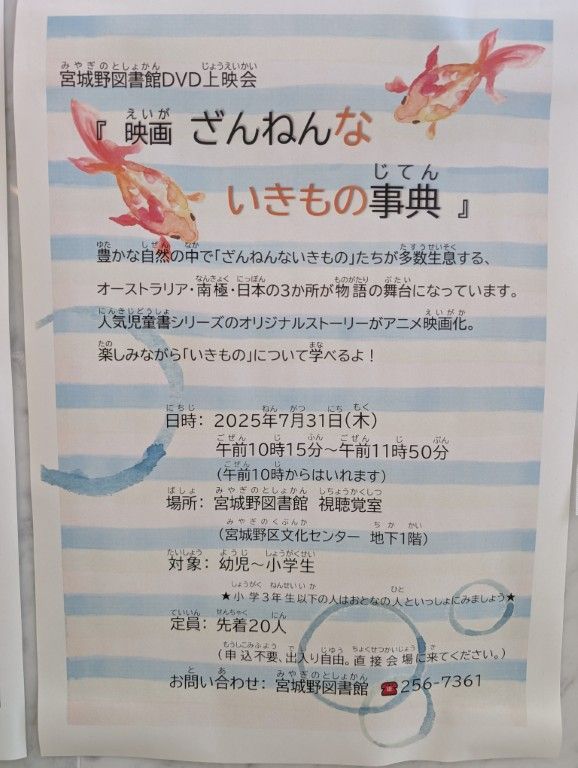 みやぎのとしょかん じょうえいかい
宮城野図書館DVD上映会
えいが
『映画 ざんねんな
じてん
いきもの事典』
ゆた しぜん なか たすうせいそく
豊かな自然の中で「ざんねんないきもの」たちが多数生息する、
なんきょく にっぽん ものがたり ぶたい
オーストラリア・南極・日本の3か所が物語の舞台になっています。
にんきじどうしょ えいがか
人気児童書シリーズのオリジナルストーリーがアニメ映画化。
たの まな
楽しみながら「いきもの」について学べるよ!
にちじ ねん がつ にち もく
日時: 2025年7月31日(木)
ごぜん じ ふん ごぜん じ ぷん
午前10時15分~午前11時50分
ごぜん じ
(午前10時からはいれます)
ばしょ みやぎのとしょかん しちょうかくしつ
場所: 宮城野図書館 視聴覚室
みやぎのくぶんか ちか かい
(宮城野区文化センター 地下1階)
たいしょう ようじ しょうがくせい
対象: 幼児~小学生
しょうがく ねんせいいか ひと
★小学3年生以下の人はおとなの人といっしょにみましょう★
ていいん せんちゃく にん
定員: 先着20人
もうしこみふよう で い じゆう ちょくせつかいじょう き
(申込不要、出入り自由。直接会場に来てください。)
と あ みやぎのとしょかん
お問い合わせ: 宮城野図書館 ☎256-7361